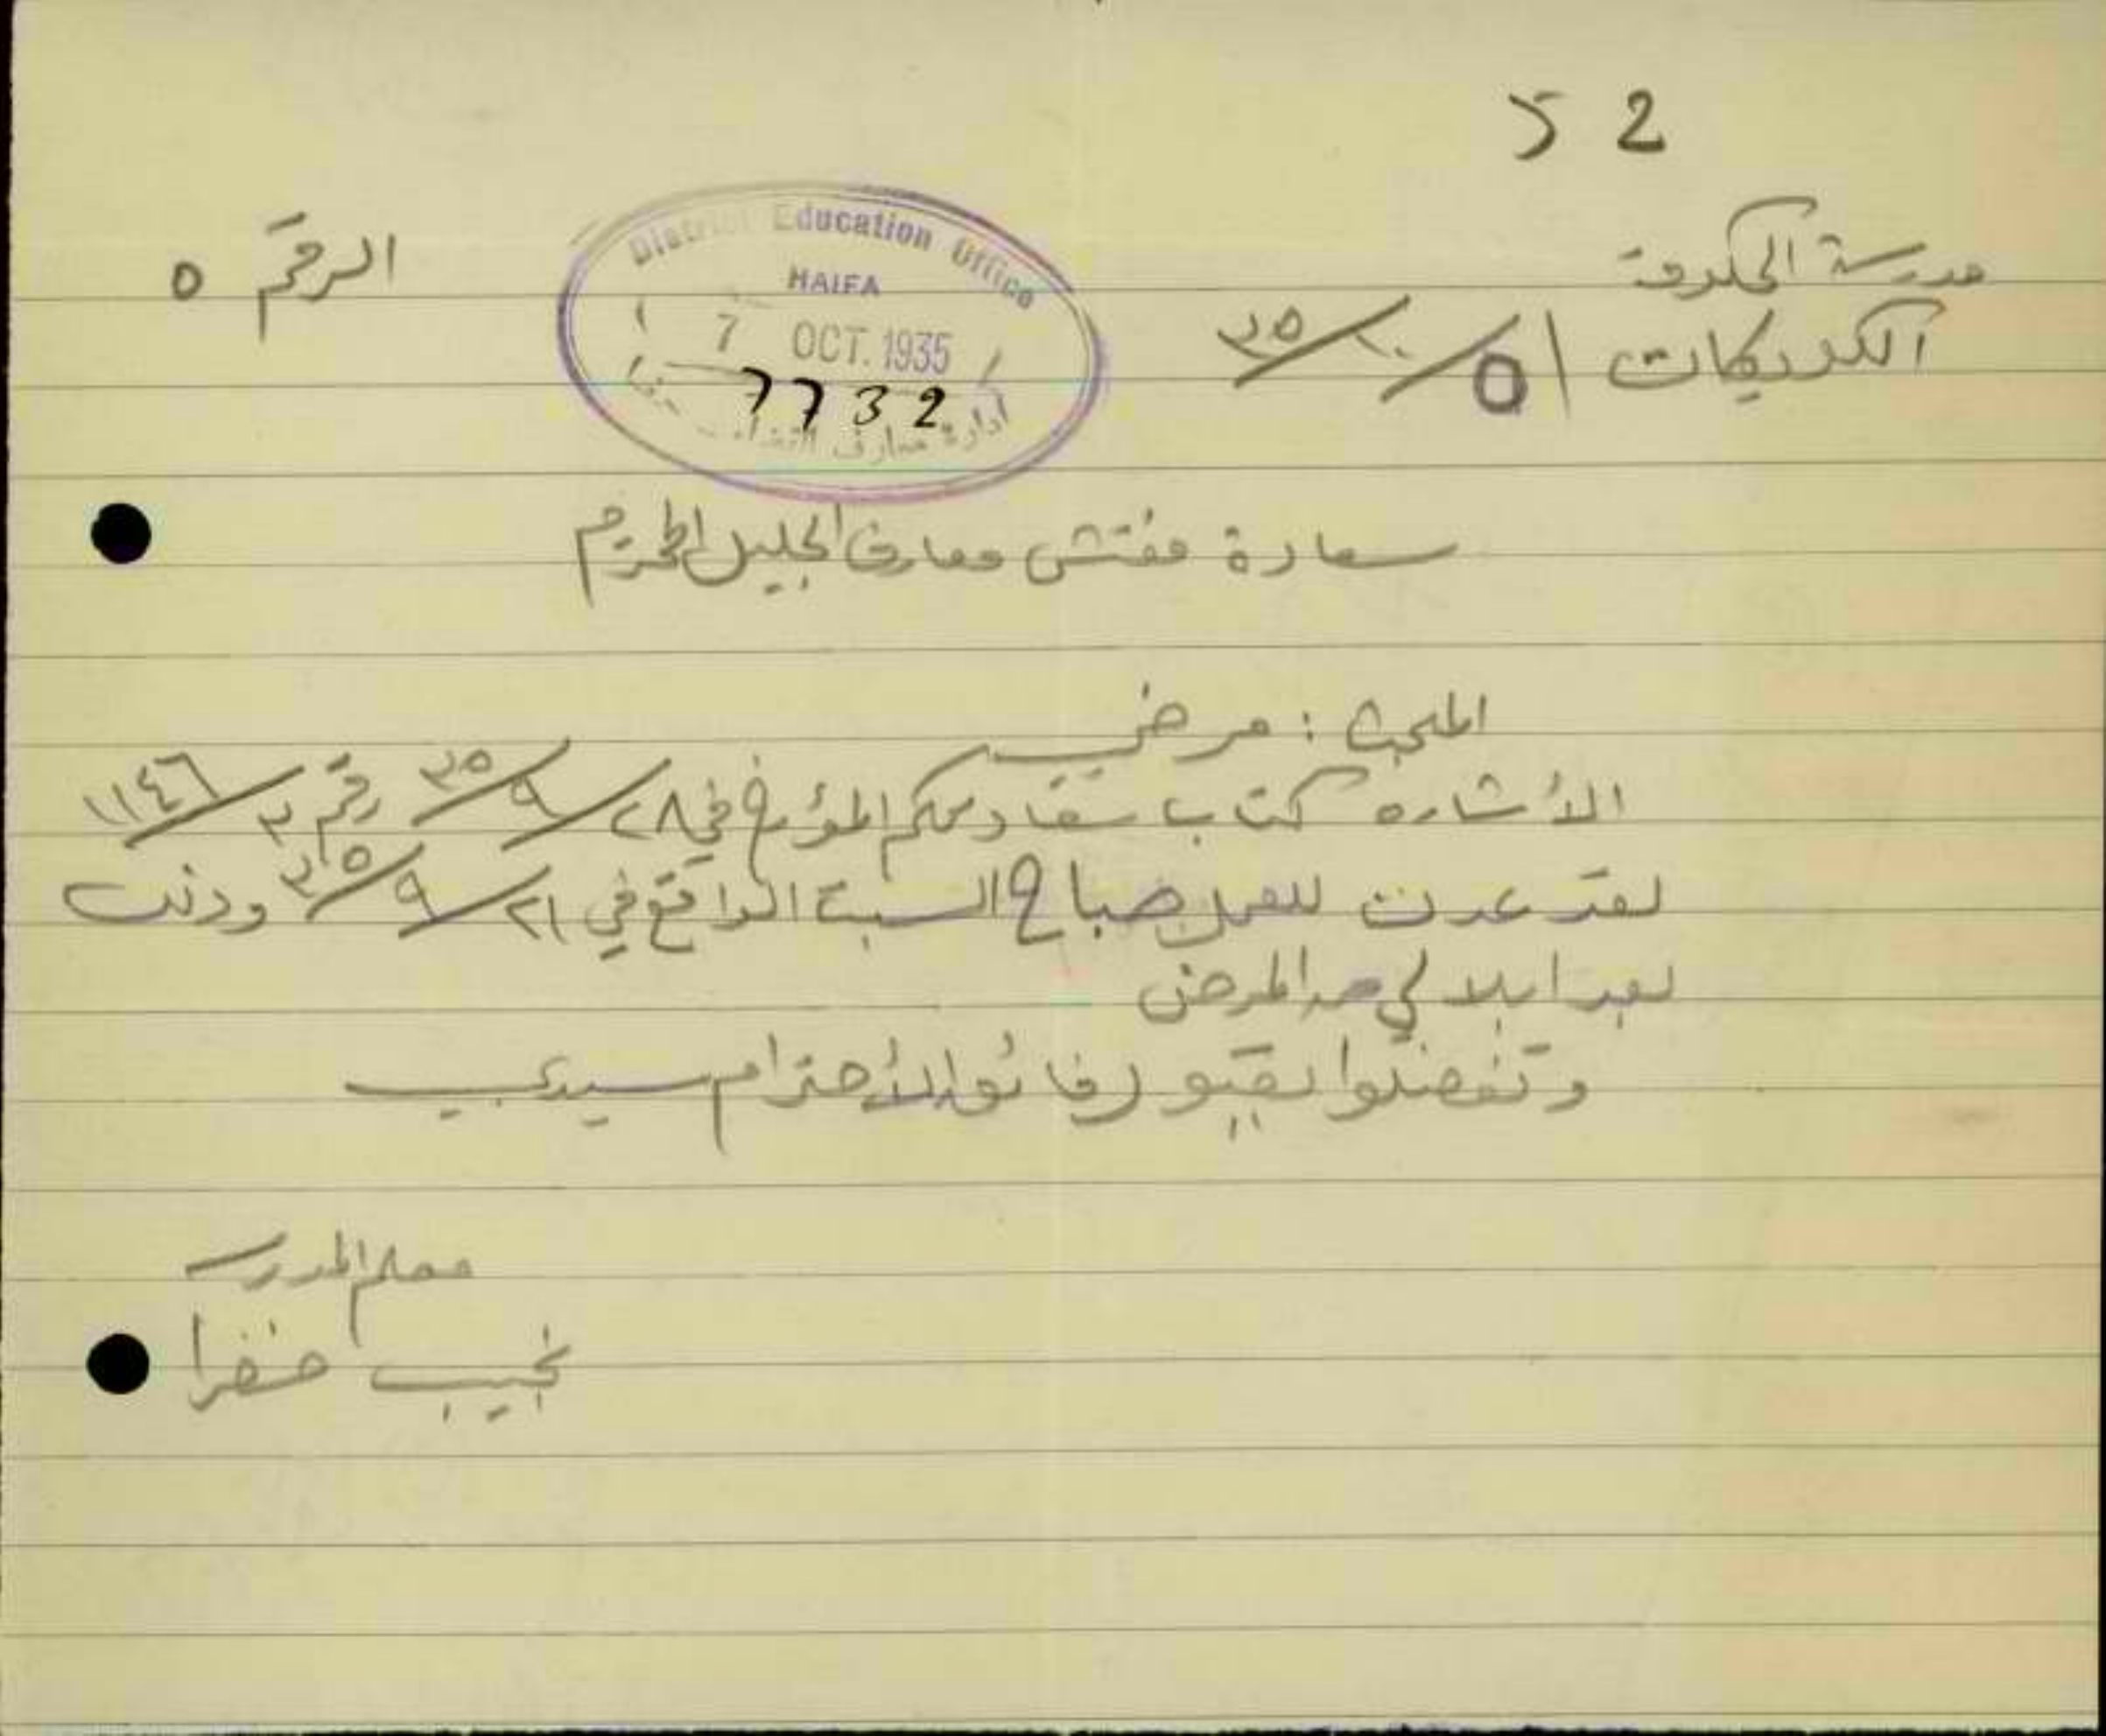 52
مدرسة الحكومة
الكويكات ٥/١٠/٣٥
الرقم ٥
District Education Office
HAIFA
7 OCT. 1935
7732
ادارة معارف
سعادة مفتش معارف الجليل المحترم
المبحث : مرضي
الأشاره كتاب سعادتكم المؤرخ في ٢٨/٩/٣٥ رقم ٣/١١٤٦
لقد عدت للعمل صباح السبت الواقع في ٢١/٩/٣٥ وذلك
بعد ابلالي من المرض
وتفضلوا بقبول فائق الأحترام سيدي
معلم المدرسة
نجيب خضرا